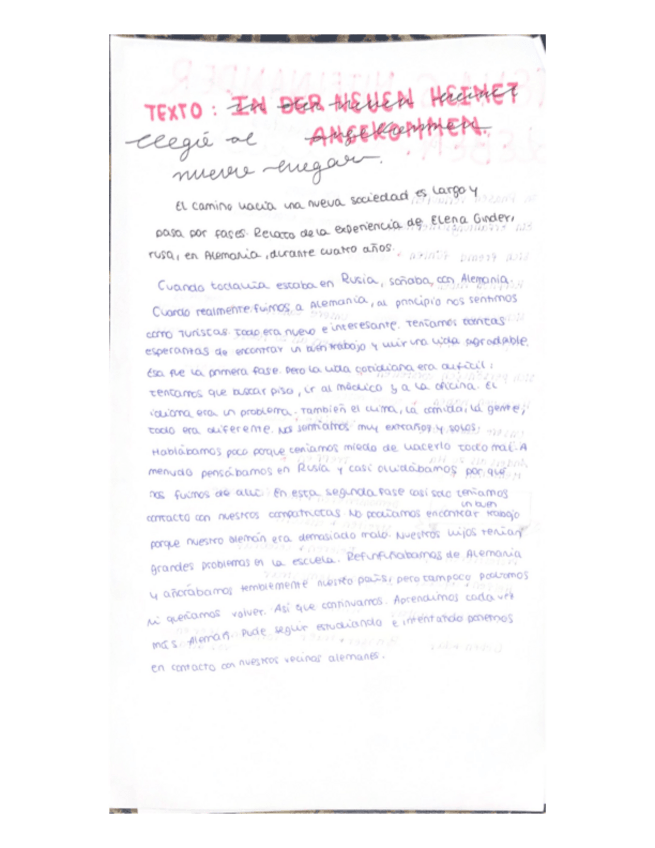 TEXTO: IN DER NEUEN HEIMET
ANGEKOMMEN.
llegué al
nuevo lugar.
El camino hacia una nueva sociedad es largo y
pasa por fases. Relato de la experiencia de Elena Ginder,
rusa, en Alemania, durante cuatro años.
Cuando todavía estaba en Rusia, soñaba, con Alemania.
Cuando realmente fuimos a Alemania, al principio nos sentimos
como turistas. Todo era nuevo e interesante. Teníamos tantas
esperanzas de encontrar un buen trabajo y vivir una vida agradable.
Esa fue la primera fase. Pero la vida cotidiana era difícil:
teníamos que buscar piso, ir al médico y a la oficina. El
idioma era un problema. También el clima, la comida, la gente,
todo era diferente. Nos sentíamos muy extraños y solos.
Hablábamos poco porque teníamos miedo de hacerlo todo mal. A
menudo pensábamos en Rusia y casi olvidábamos por qué
nos fuimos de allí. En esta segunda fase casi solo teníamos
contacto con nuestros compatriotas. No podíamos encontrar un buen trabajo
porque nuestro alemán era demasiado malo. Nuestros hijos tenían
grandes problemas en la escuela. Refunfuñábamos de Alemania
y añorábamos terriblemente nuestro país, pero tampoco podíamos
ni queríamos volver. Así que continuamos. Aprendimos cada vez
más Alemán. Pude seguir estudiando e intentando ponernos
en contacto con nuestros vecinos alemanes.